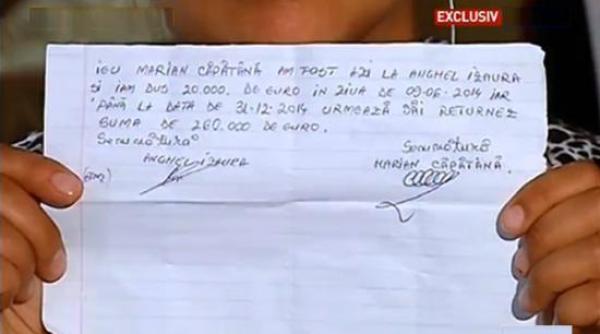 EXCLUSIV
IEU MARIAN CĂPĂTÂNĂ AM FOST AZI LA ANGHEL IZAURA
SI IAM DUS 20.000. DE EURO IN ZIUA DE 09-06-2014 IAR
PÂNĂ LA DATA DE 31-12-2014 URMEAZĂ SĂI RETURNEZ
SUMA DE 260.000 DE EURO.
Semmătura Semmătură
ANGHEL IZAURA MARIAN CĂPĂTÂNĂ.